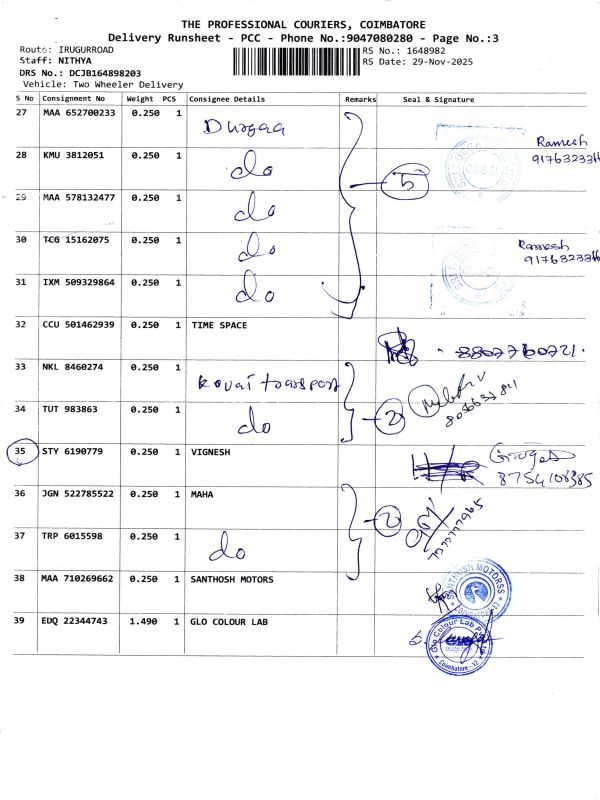 THE PROFESSIONAL COURIERS, COIMBATORE
Delivery Runsheet - PCC - Phone No.:9047080280 - Page No.:3
Route: IRUGURROAD RS No.: 1648982
Staff: NITHYA RS Date: 29-Nov-2025
DRS No.: DCJB164898203
Vehicle: Two Wheeler Delivery
S No Consignment No Weight PCS Consignee Details Remarks Seal & Signature
27 MAA 652700233 0.250 1 Durgaa Ramesh
28 KMU 3812051 0.250 1 do 5
29 MAA 578132477 0.250 1 do
30 TCG 15162075 0.250 1 do Ramesh
31 IXM 509329864 0.250 1 do
32 CCU 501462939 0.250 1 TIME SPACE 8807760721
33 NKL 8460274 0.250 1 Kovai transport
34 TUT 983863 0.250 1 do 2
35 STY 6190779 0.250 1 VIGNESH 8754108385
36 JGN 522785522 0.250 1 MAHA 2
37 TRP 6015598 0.250 1 do
38 MAA 710269662 0.250 1 SANTHOSH MOTORS SANTHOSH MOTORSS
39 EDQ 22344743 1.490 1 GLO COLOUR LAB Glo Colour Lab Coimbatore - 12